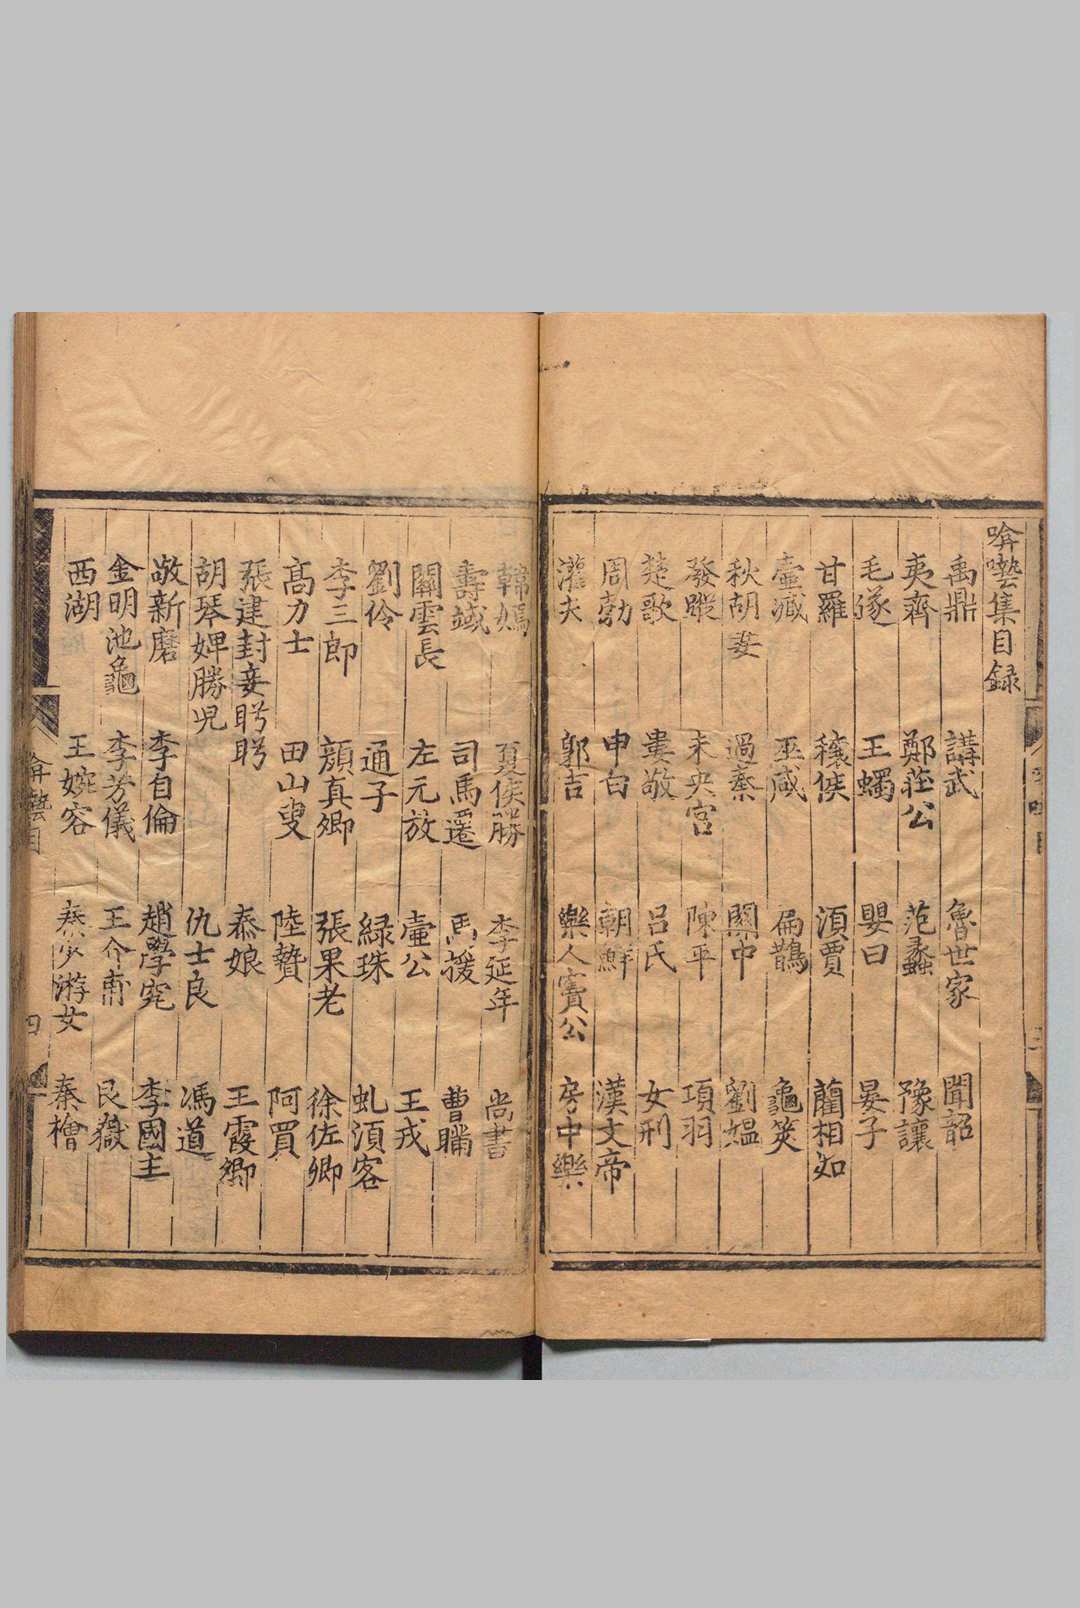 唵囈集目録
禹鼎 講武 魯世家 聞韶
夷齊 鄭莊公 范蠡 豫讓
毛遂 王蠋 嬰臼 晏子
甘羅 穰侯 須賈 藺相如
壺藏 巫咸 扁鵲 龜筴
秋胡妾 過秦 關中 劉媼
發蹤 未央宮 陳平 項羽
楚歌 婁敬 呂氏 女刑
周勃 申白 朝鮮 漢文帝
灌夫 郭吉 樂人竇公 房中樂
韓嫣 夏侯勝 李延年 尚書
壽域 司馬遷 馬援 曹瞞
關雲長 左元放 壷公 王戎
劉伶 通子 緑珠 虬須客
李三郎 顔真卿 張果老 徐佐卿
髙力士 田山叟 陸贄 阿買
張建封妾盻盻 泰娘 王霞卿
胡琴婢勝児 仇士良 馮道
敬新磨 李自倫 趙學究 李國主
金明池龜 李芳儀 王介甫 艮嶽
西湖 王婉容 秦少游女 秦檜
四